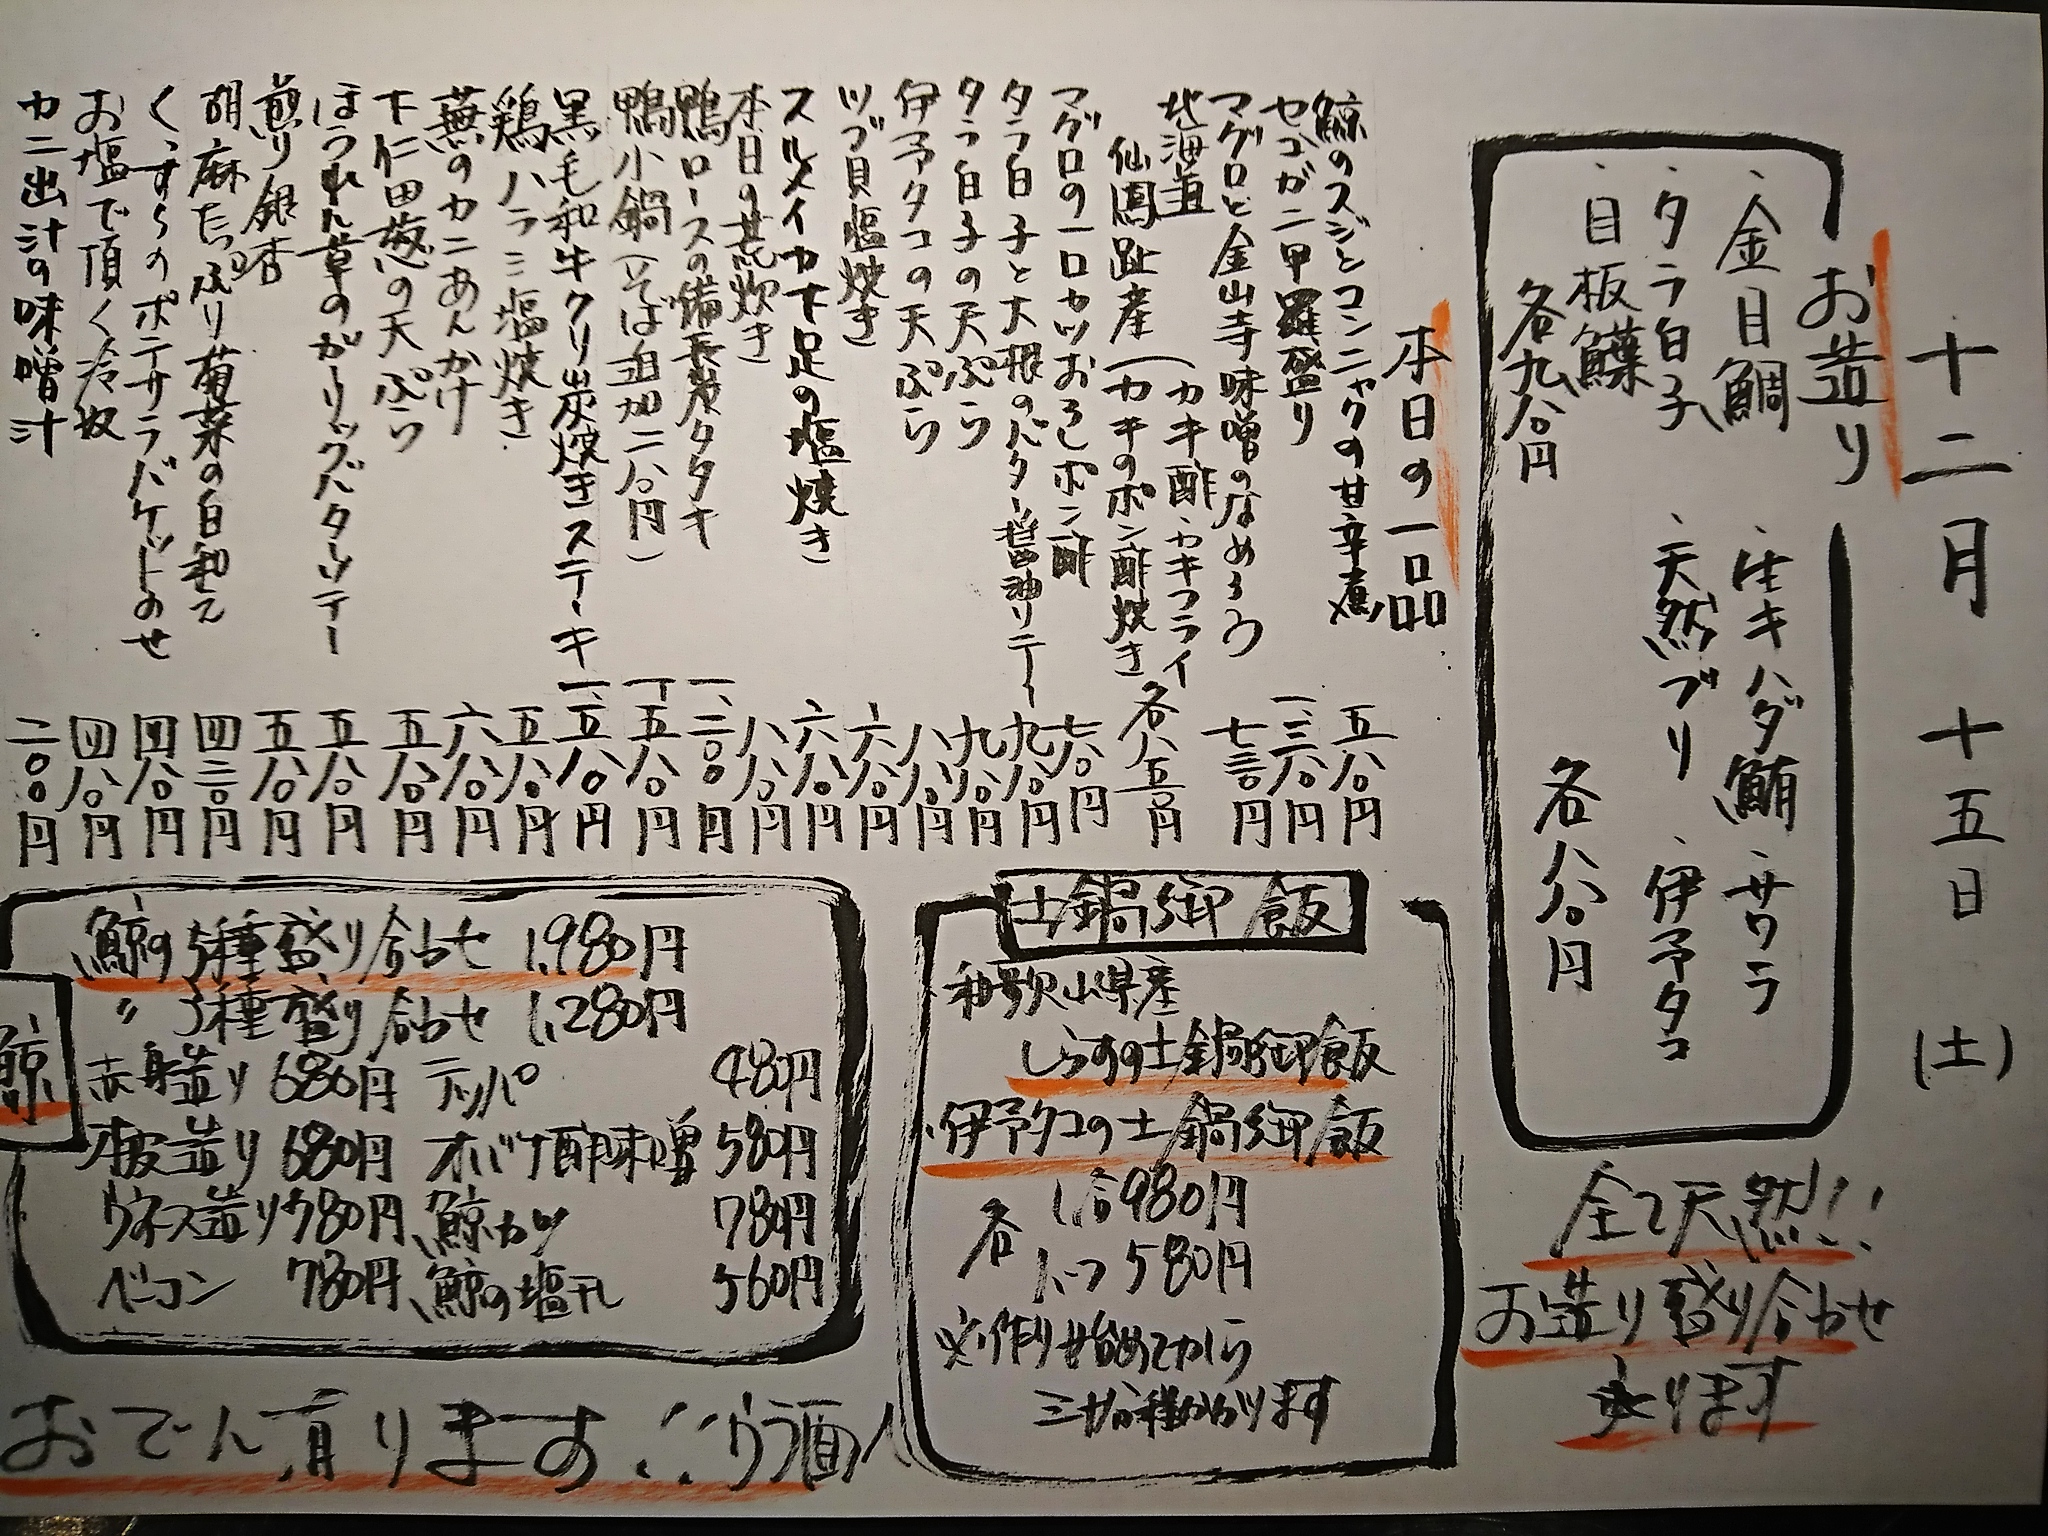 十二月 十五日 (土)
お造り
・金目鯛 ・生キハダ鮪 ・サワラ
・タラ白子 ・天然ブリ ・伊予タコ
・目板鰈
各九八〇円 各八八〇円
全て天然!!
お造り盛り合わせ
承ります
本日の一品
鯨のスジとコンニャクの甘辛煮 五八〇円
セコガニ甲羅盛り 一、三八〇円
マグロと金山寺味噌のなめろう 七三〇円
北海道
仙鳳趾産(カキ酢・カキフライ
(カキのポン酢焼き 各八五〇円
マグロの一口カツおろしポン酢 七八〇円
タラ白子と大根のバター醤油ソテー 九八〇円
タラ白子の天ぷら 九八〇円
伊予タコの天ぷら 八八〇円
ツブ貝塩焼き 六八〇円
スルメイカ下足の塩焼き 六八〇円
本日の荒炊き 八八〇円
鴨ロースの備長炭タタキ 一、二〇〇円
鴨小鍋(そば追加二八〇円) 一、五八〇円
黒毛和牛クリ炭焼きステーキ 一、五八〇円
鶏ハラミ塩焼き 五八〇円
蕪のカニあんかけ 六八〇円
下仁田葱の天ぷら 五八〇円
ほうれん草のガーリックバターソテー 五八〇円
煎り銀杏 五八〇円
胡麻たっぷり菊菜の白和え 四三〇円
くずらのポテサラバケットのせ 四八〇円
お塩で頂く冷奴 四八〇円
カニ出汁の味噌汁 二〇〇円
土鍋御飯
和歌山県産
しらすの土鍋御飯
・伊予タコの土鍋御飯
各 1合980円
ハーフ580円
※作り始めてから
三十分程かかります
鯨
鯨の5種盛り合わせ 1,980円
〃 3種盛り合わせ 1,280円
赤身造り 680円 テッパ 480円
本皮造り 680円 オバケ酢味噌 580円
ウネス造り 780円 鯨カツ 780円
ベーコン 780円 鯨の塩干し 560円
おでん有ります!!ウラ面へ